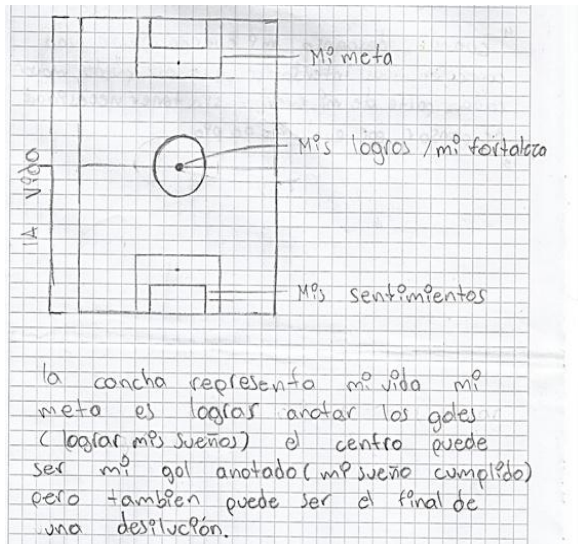 Mi meta
Mis logros / mi fortaleza
LA Vida
Mis sentimientos
la concha representa mi vida mi
meta es lograr anotar los goles
(lograr mis sueños) el centro puede
ser mi gol anotado (mi sueño cumplido)
pero tambien puede ser el final de
una desilución.